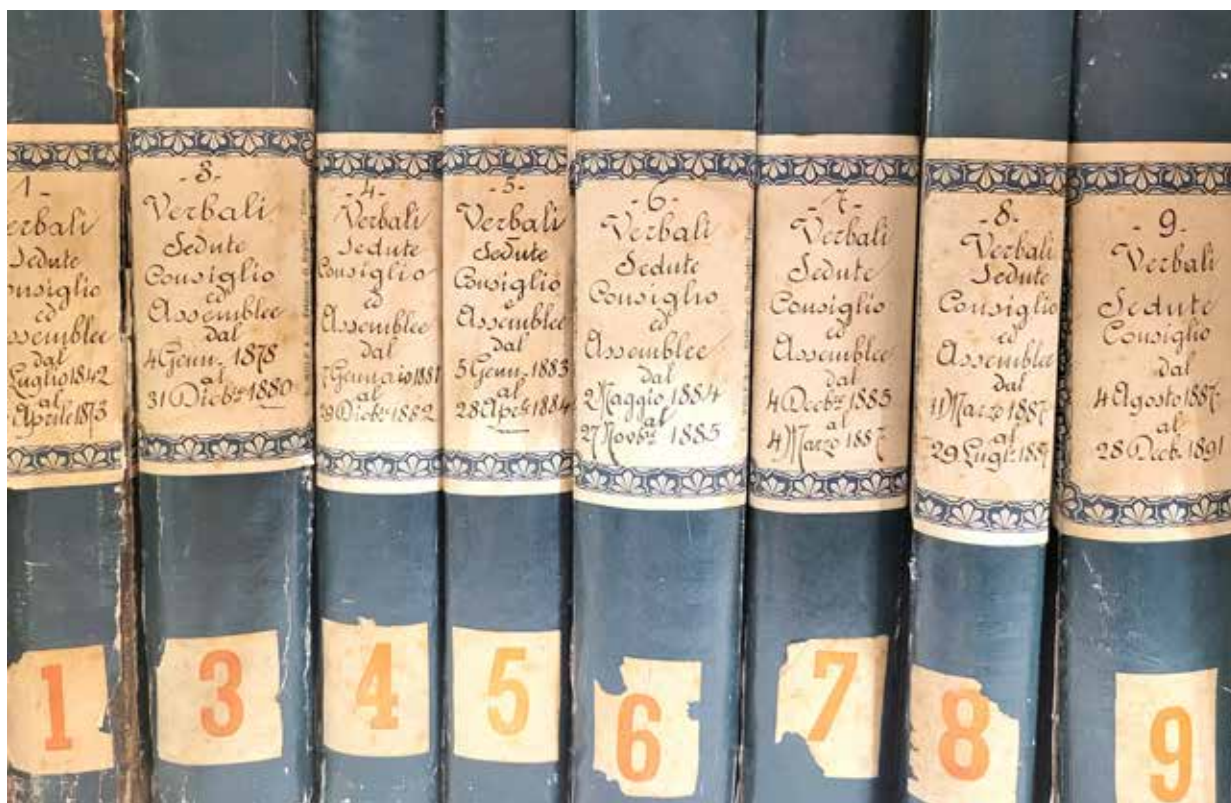 1-
erbali
Sedute
onsiglio
ed
ssemblee
dal
Luglio 1842
al
Aprile 1873
1
-3-
Verbali
Sedute
Consiglio
ed
Assemblee
dal
4 Genn. 1878
al
31 Dicbre 1880
3
-4-
Verbali
Sedute
Consiglio
ed
Assemblee
dal
7 Gennaio 1881
al
29 Dicbre 1882
4
-5-
Verbali
Sedute
Consiglio
e
Assemblee
dal
5 Genn. 1883
al
28 Aprle 1884
5
-6-
Verbali
Sedute
Consiglio
ed
Assemblee
dal
2 Maggio 1884
al
27 Novbre 1885
6
-7-
Verbali
Sedute
Consiglio
ed
Assemblee
dal
4 Decbre 1885
al
4 Marzo 1887
7
-8-
Verbali
Sedute
Consiglio
ed
Assemblee
dal
11 Marzo 1887
al
29 Lugl. 1887
8
-9-
Verbali
Sedute
Consiglio
dal
4 Agosto 1887
al
28 Decb. 1891
9